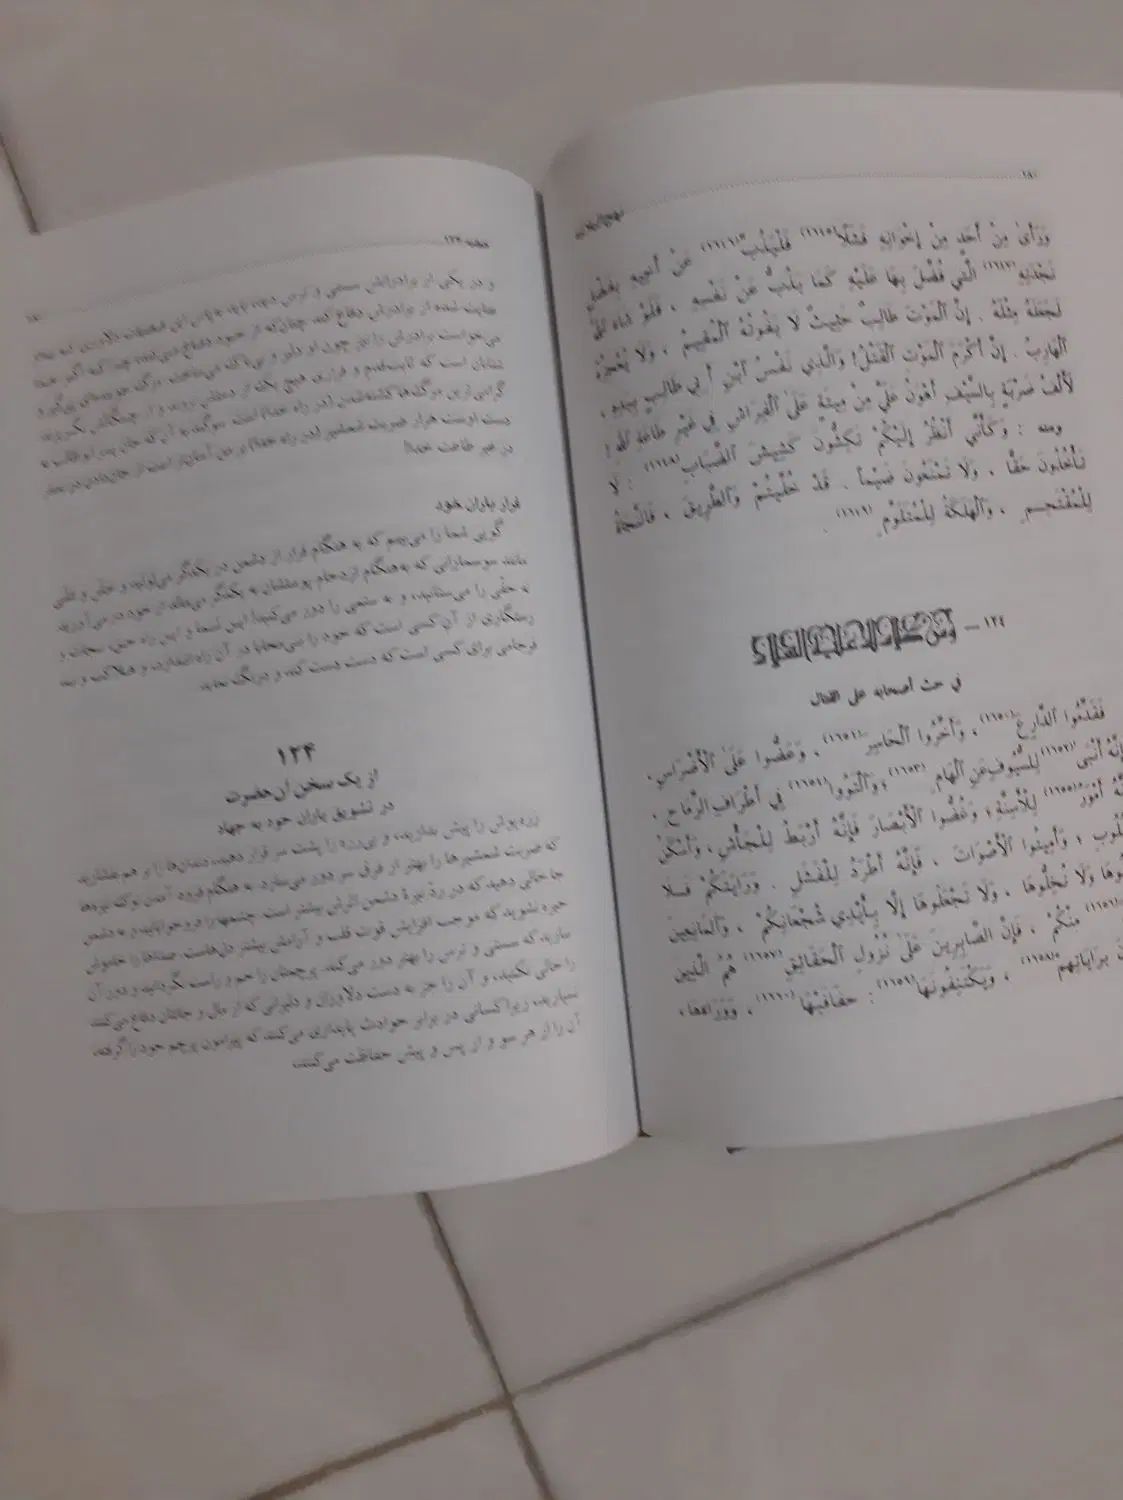 ١٨٠
نهج البلاغه
وَرَأَىٰ مِنْ أَحَدٍ مِنْ إِخْوَانِهِ فَشَلًا (١٦٤٥) فَلْيَذُبَّ (١٦٤٦) عَنْ أَخِيهِ بِفَضْلِ
نَجْدَتِهِ (١٦٤٧) الَّتِي فُضِّلَ بِهَا عَلَيْهِ كَمَا يَذُبُّ عَنْ نَفْسِهِ ، فَلَوْ شَاءَ اللهُ
لَجَعَلَهُ مِثْلَهُ . إِنَّ الْمَوْتَ طَالِبٌ حَثِيثٌ لَا يَفُوتُهُ الْمُقِيمُ ، وَلَا يُعْجِزُهُ
الْهَارِبُ . إِنَّ أَكْرَمَ الْمَوْتِ الْقَتْلُ! وَالَّذِي نَفْسُ ابْنِ أَبِي طَالِبٍ بِيَدِهِ ،
لَأَلْفُ ضَرْبَةٍ بِالسَّيْفِ أَهْوَنُ عَلَيَّ مِنْ مِيتَةٍ عَلَى الْفِرَاشِ فِي غَيْرِ طَاعَةِ اللهِ !
ومنه : وَكَأَنِّي أَنْظُرُ إِلَيْكُمْ تَكِشُّونَ كَشِيشَ الضِّبَابِ (١٦٤٨) : لَا
تَأْخُذُونَ حَقًّا ، وَلَا تَمْنَعُونَ ضَيْمًا . قَدْ خُلِّيتُمْ وَالطَّرِيقَ ، فَالنَّجَاةُ
لِلْمُقْتَحِمِ ، وَالْهَلَكَةُ لِلْمُتَلَوِّمِ (١٦٤٩) .
١٢٤ –
في حث أصحابه على القتال
فَقَدِّمُوا الدَّارِعَ (١٦٥٠) ، وَأَخِّرُوا الْحَاسِرَ (١٦٥١) ، وَعَضُّوا عَلَىٰ الْأَضْرَاسِ،
أَنْبَىٰ (١٦٥٢) لِلسُّيُوفِ عَنِ الْهَامِ (١٦٥٣) ؛ وَالْتَوُوا (١٦٥٤) فِي أَطْرَافِ الرِّمَاحِ ،
أَمْوَرُ (١٦٥٥) لِلْأَسِنَّةِ؛ وَغُضُّوا الْأَبْصَارَ فَإِنَّهُ أَرْبَطُ لِلْجَأْشِ، وَأَسْكَنُ
؛ وَأَمِيتُوا الْأَصْوَاتَ ، فَإِنَّهُ أَطْرَدُ لِلْفَشَلِ . وَرَايَتَكُمْ فَلَا
وَلَا تُخِلُّوهَا ، وَلَا تَجْعَلُوهَا إِلَّا بِأَيْدِي شُجْعَانِكُمْ ، وَالْمَانِعِينَ
مِنْكُمْ ، فَإِنَّ الصَّابِرِينَ عَلَىٰ نُزُولِ الْحَقَائِقِ (١٦٥٧) هُمُ الَّذِينَ
بِرَايَاتِهِمْ (١٦٥٨) ، وَيَكْتَنِفُونَهَا (١٦٥٩) : حِفَافَيْهَا (١٦٦٠) ، وَوَرَاءَهَا،
خطبه ١٢٣
و در یکی از برادرانش سستی و ترس دید، باید به پاس این
عنایت شده از برادرش دفاع کند چنان‌که از خود دفاع می‌کند، چرا که اگر خدا
می‌خواست برادرش را نیز چون او دلیر و بی‌باک می‌ساخت. مرگ جوینده‌ای پی‌گیر و
شتابان است که
گرامی‌ترین مرگ‌ها کشته‌شدن (در راه خدا) است. سوگند به آن که جان پسر ابوطالب به
دست اوست هزار ضربت شمشیر (در راه خدا) بر من آسان‌تر است از جان‌دادن در بستر
در غیر طاعت خدا!
فرار یاران خود
گویی شما را می‌بینم که به هنگام فرار از دشمن در یکدیگر می‌لولید و
مانند سوسمارانی که به‌هنگام ازدحام پوستشان به یکدیگر از خود در می‌آورید
نه حقّی را می‌ستانید، و نه ستمی را دور می‌کنید! این شما و این راه حق، نجات و
رستگاری از آن کسی است که خود را بی‌محابا در آن راه اندازد، و هلاکت و بد
فرجامی برای کسی است که دست دست کند و درنگ نماید.
١٢٤
از یک سخن آن حضرت
در تشویق یاران خود به جهاد
زره‌پوش را پیش بدارید، و بی‌زره را پشت سر قرار دهید، دندان‌ها را بر هم بفشارید
که ضربت شمشیرها را بهتر از فرق سر دور می‌سازد، به هنگام فرود آمدن نوک نیزه‌ها
جا خالی دهید که در ردّ نیزهٔ دشمن اثرش بیشتر است. چشمها را فروخوابانید و به دشمن
خیره نشوید که موجب افزایش قوت قلب و آرامش بیشتر دل‌هاست. صداها را خاموش
سازید، که سستی و ترس را بهتر دور می‌کند. پرچمتان را خم و راست نگردانید و دور آن
را خالی نکنید، و آن را جز به دست دلاوران و دلیرانی که از مال و جانتان دفاع می‌کنند
نسپارید، زیرا کسانی در برابر حوادث پایداری می‌کنند که پیرامون پرچم خود را گرفته،
آن را از هر سو و از پس و پیش حفاظت می‌کنند،